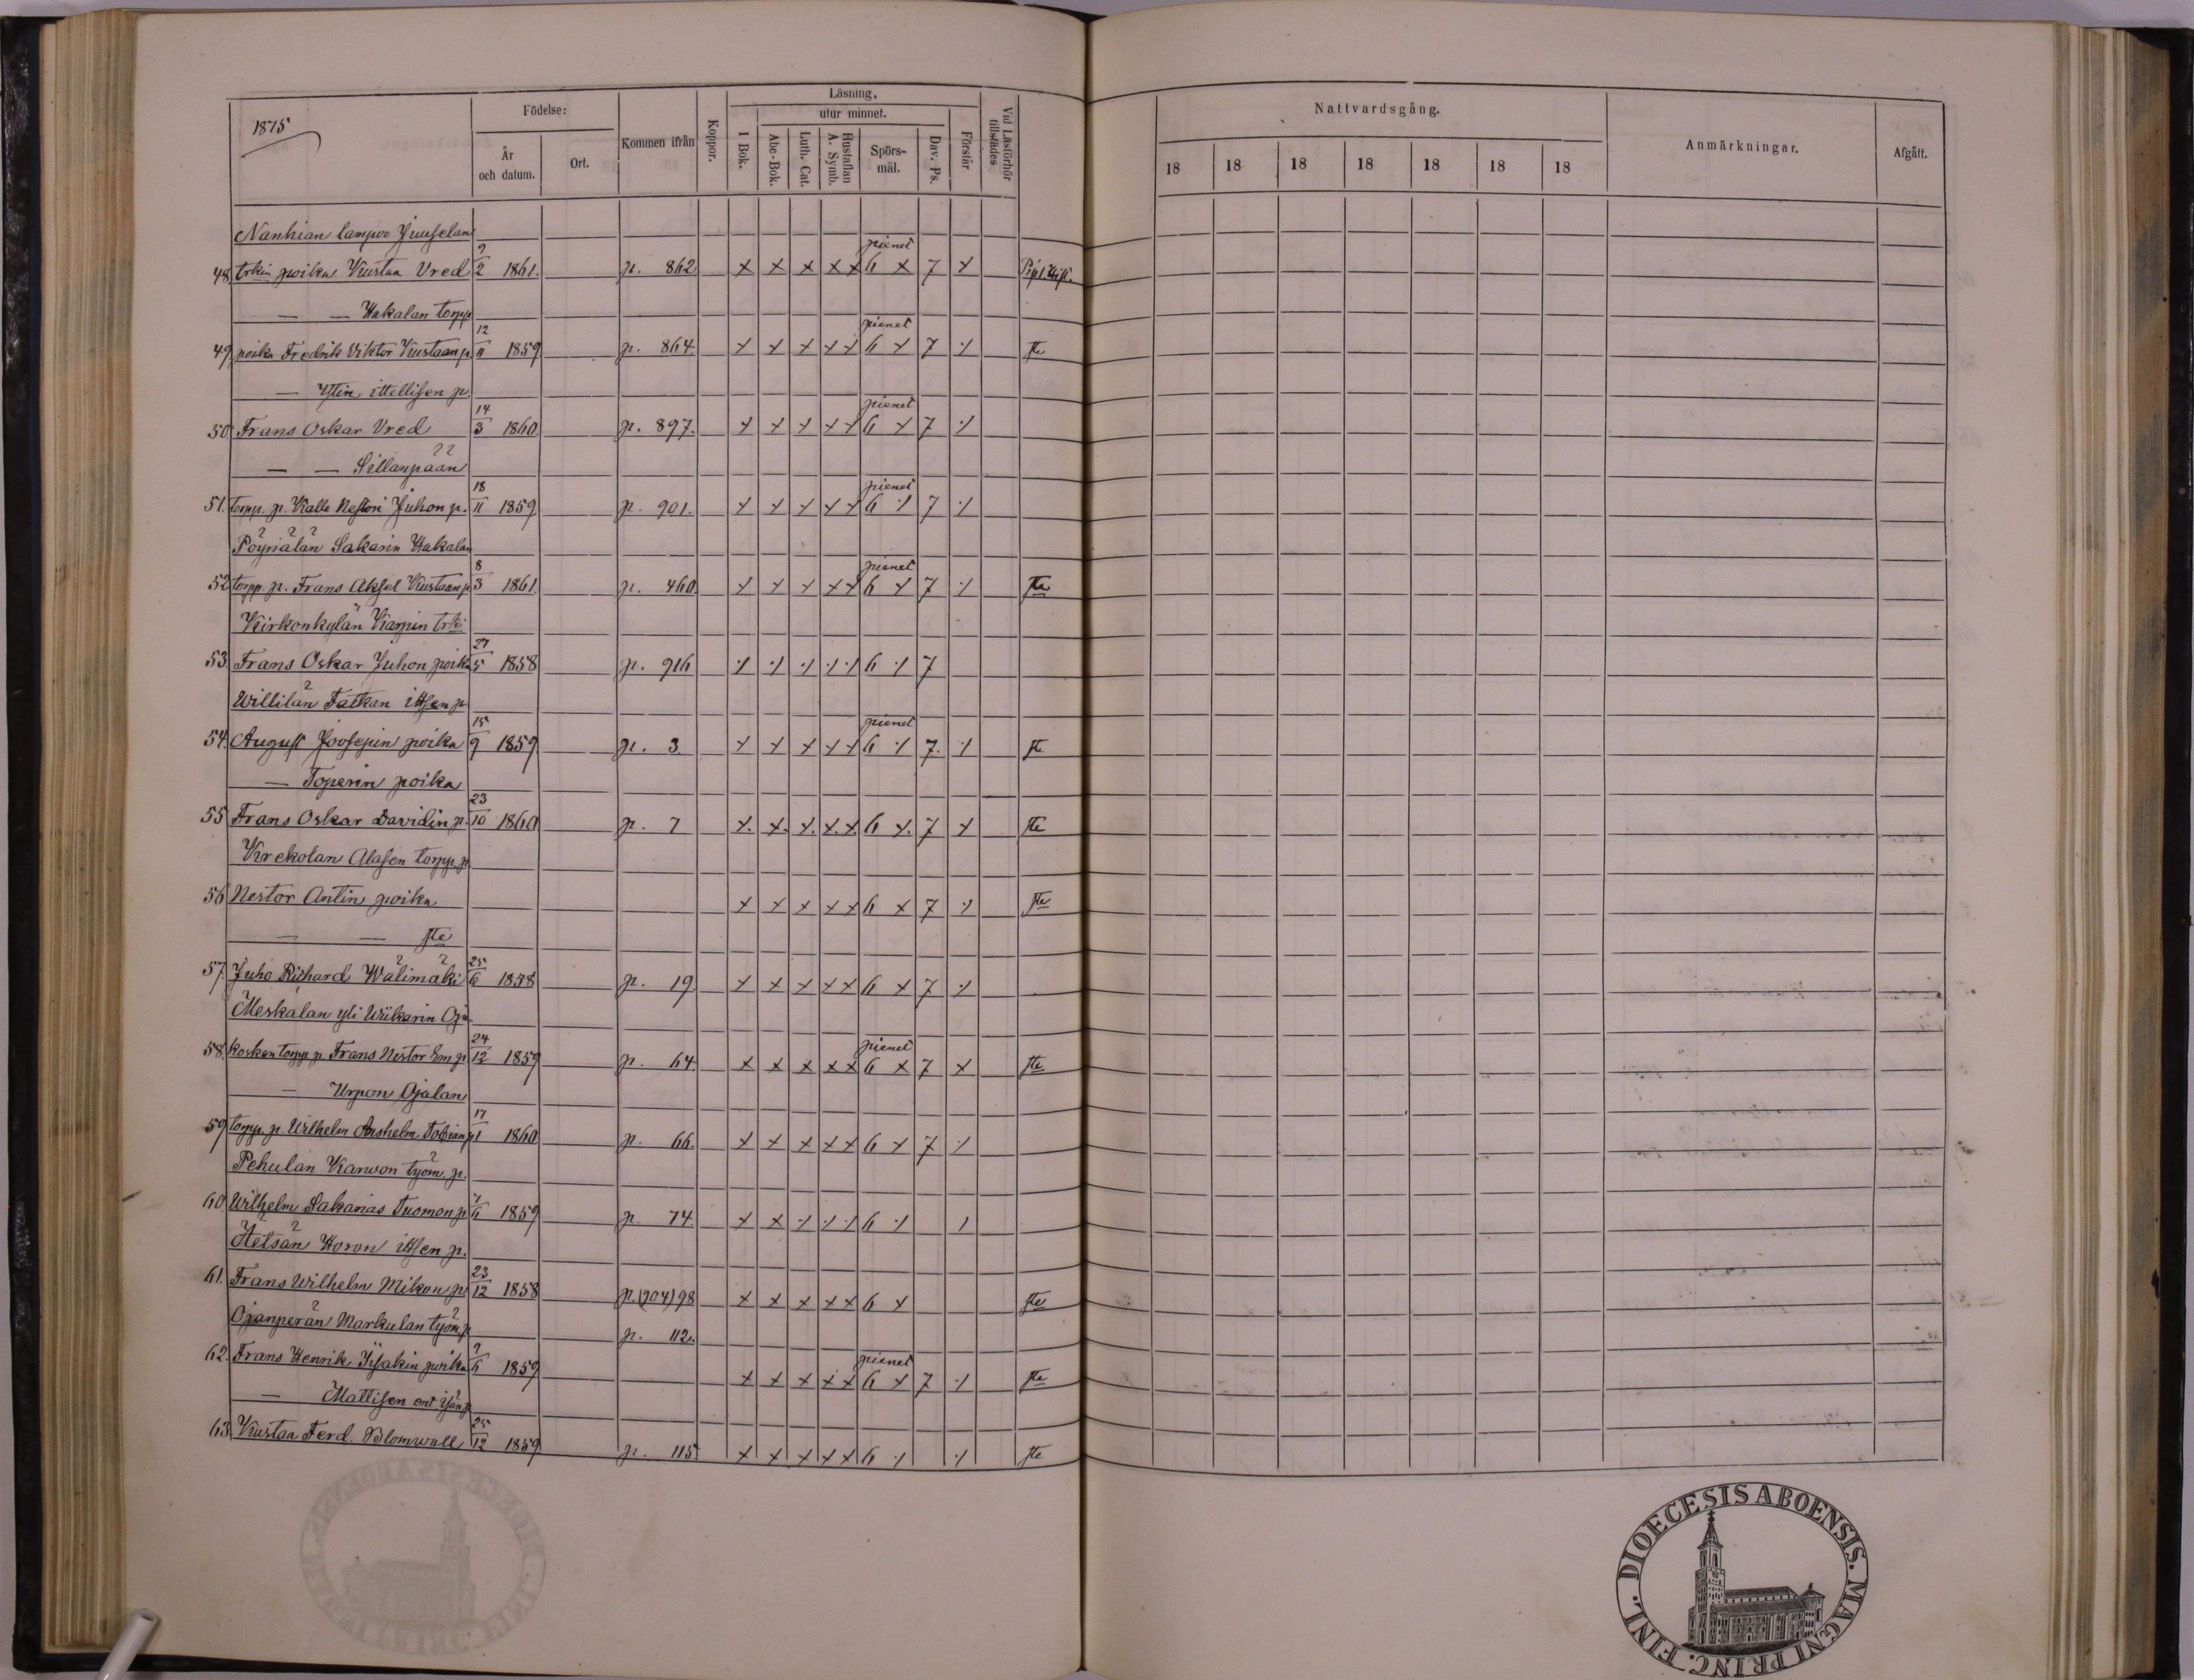 1875
Födelse:
År och datum.
Ort.
Kommen ifrån
Koppor.
Läsning,
utur minnet.
I Bok.
Abc-Bok.
Luth. Cat.
Hustaflan A. Symb.
Spörsmål.
Dav. Ps.
Förstår
Vid Läsförhör tillstädes
Nattvardsgång.
18 18 18 18 18 18 18
Anmärkningar.
Afgått.
Nanhian lampuo Juuselan
48. trkin poika Kustaa Vred 9/2 1861. p. 862 x x x x x pienet 6 x 7 x
— — Hakalan torpp
49. poika Fredrik Viktor Kustaan p. 12/11 1859 p. 864. x x x x x pienet 6 x 7 ·/· 
— Yllin ittellisen p.
50. Frans Oskar Vred 14/3 1860 p. 897. x x x x x pienet 6 x 7 ·/·
— — Sillanpään
51. torpp. p. Kalle Nestori Juhon p. 18/11 1859 p. 901. x x x x x pienet 6 ·/· 7 ·/·
Pöyriälän Sakarin Hakalan
52. torpp. p. Frans Aksel Kustaan p 8/3 1861. p. 460. x x x x x pienet 6 x 7 ·/·
Kirkonkylän Karpin trki
53. Frans Oskar Juhon poika 27/5 1858 p. 916 ·/· ·/· ·/· ·/· ·/· 6 ·/· 7
Willilän Fatkan ittsen p
54. August Joosepin poika 15/9 1859 p. 3. x x x x x pienet 6 ·/· 7. ·/·
— Toperin poika
55. Frans Oskar Davidin p. 23/10 1860 p. 7 x. x. x. x. x. 6 x. 7 x
Krekolan Alasen torpp. p
56. Nestor Antin poika x x x x x 6 x 7 ·/·
— — ste
57. Juho Richard Wälimäki 25/6 1858 p. 19 x x x x x 6 x 7 ·/·
Meskalan yli Wiikarin Oja
58. kosken torpp. p. Frans Nestor Em. p 24/12 1859 p. 64. x x x x x pienet 6 x 7 x
— Urpon Ojalan
59. torpp. p. Wilhelm Anshelm Tobian p 17/1 1860 p. 66. x x x x x 6 x 7 ·/·
Pehulan Karwon työm. p.
60. Wilhelm Sakarias Tuomon p 1859 p. 74 x x ·/· ·/· ·/· 6 ·/·
Hetsän Horon ittsen p.
61. Frans Wilhelm Mikon p 23/12 1858 p. (204) 98 x x x x x 6 x
Ojanperän Markulan työm p p. 112.
62. Frans Henrik Iisakin poika 7/6 1859 x x x x x pienet 6 x 7 ·/·
— Mattisen ent isän p
63. Kustaa Ferd. Blomwall 25/12 1859 p. 115 x x x x x 6 ·/· ·/·
DIOECESIS ABOENSIS. MAGNI PRINC. FINL.